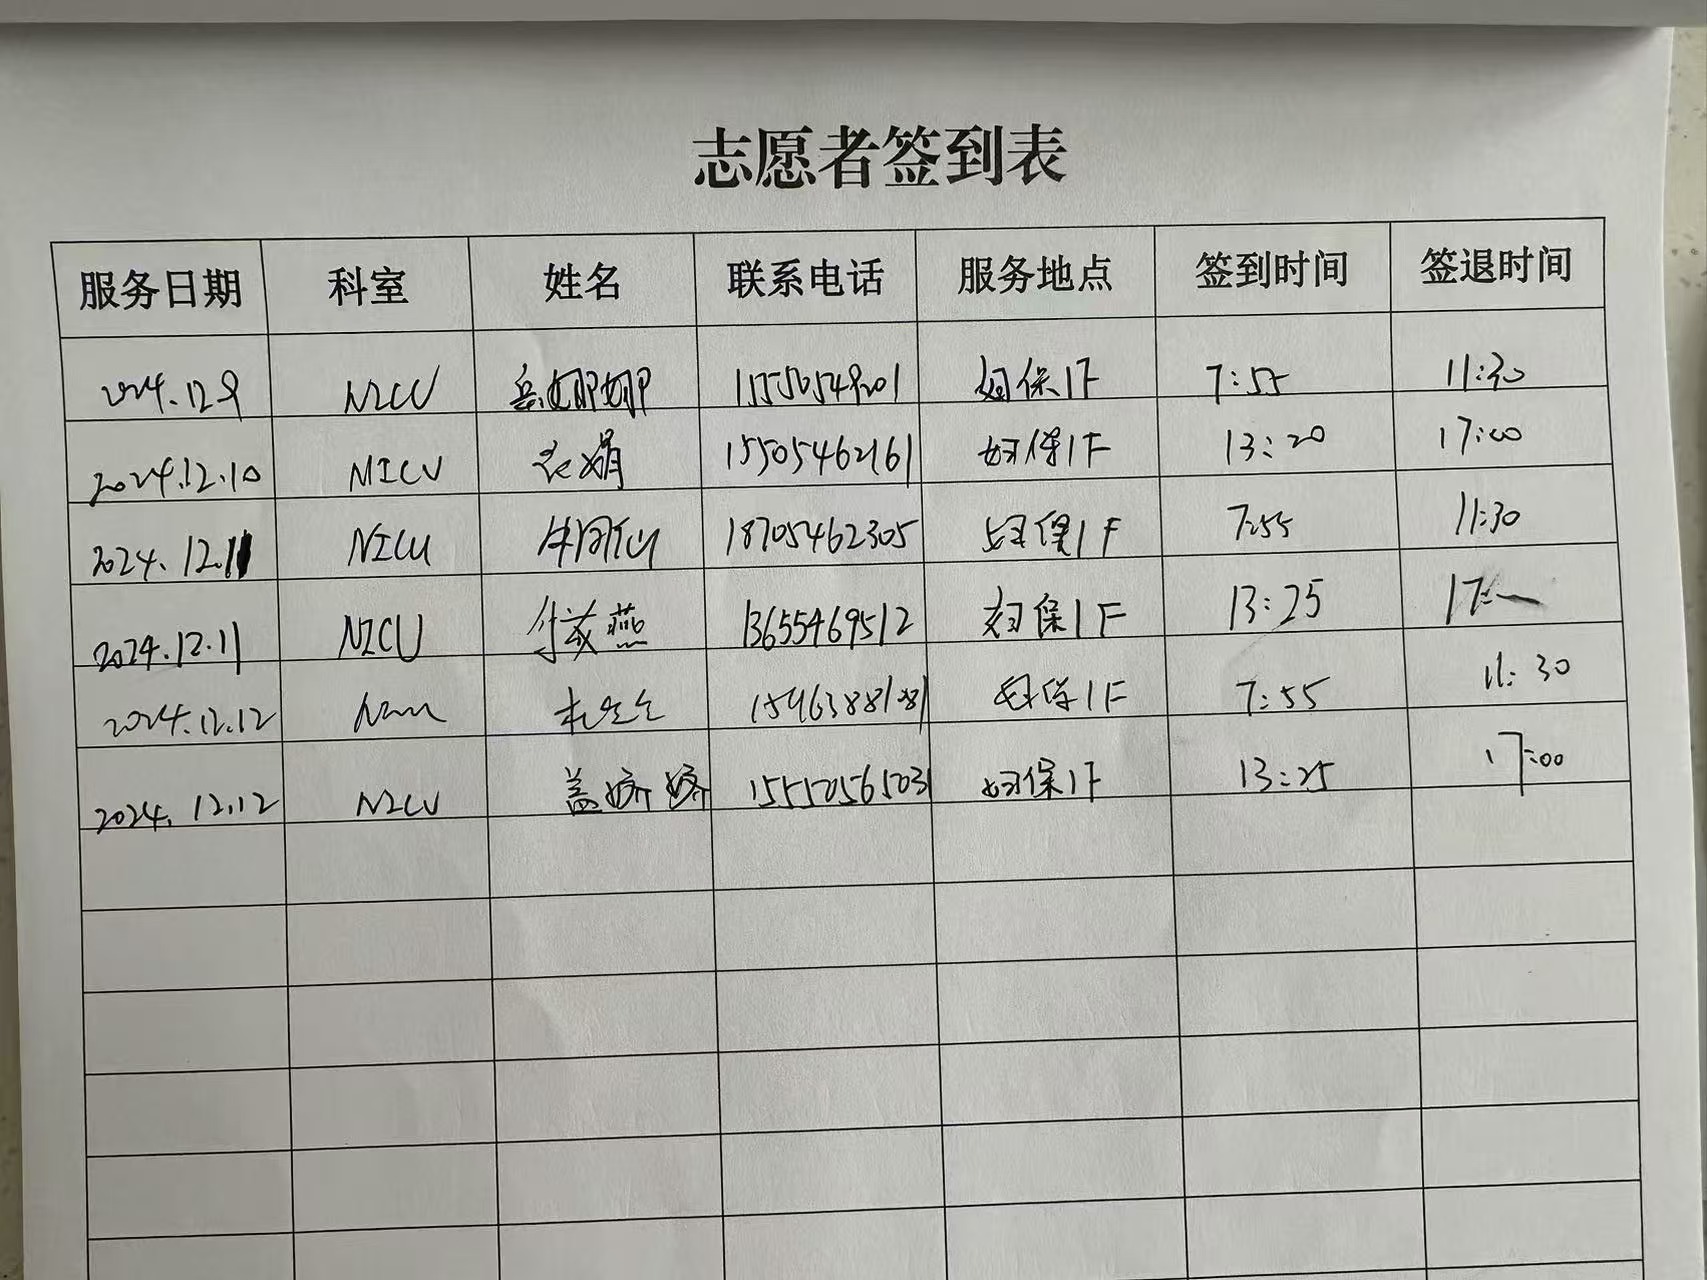 志愿者签到表
服务日期 科室 姓名 联系电话 服务地点 签到时间 签退时间
2024.12.9 NICU 岳娜娜 15550549201 妇保1F 7:55 11:30
2024.12.10 NICU 衣娟 15505462161 妇保1F 13:20 17:00
2024.12.11 NICU 18705462305 妇保1F 7:55 11:30
2024.12.11 NICU 燕 13655469512 妇保1F 13:25 17:
2024.12.12 妇保1F 7:55 11:30
2024.12.12 NICU 盖娇娇 妇保1F 13:25 17:00